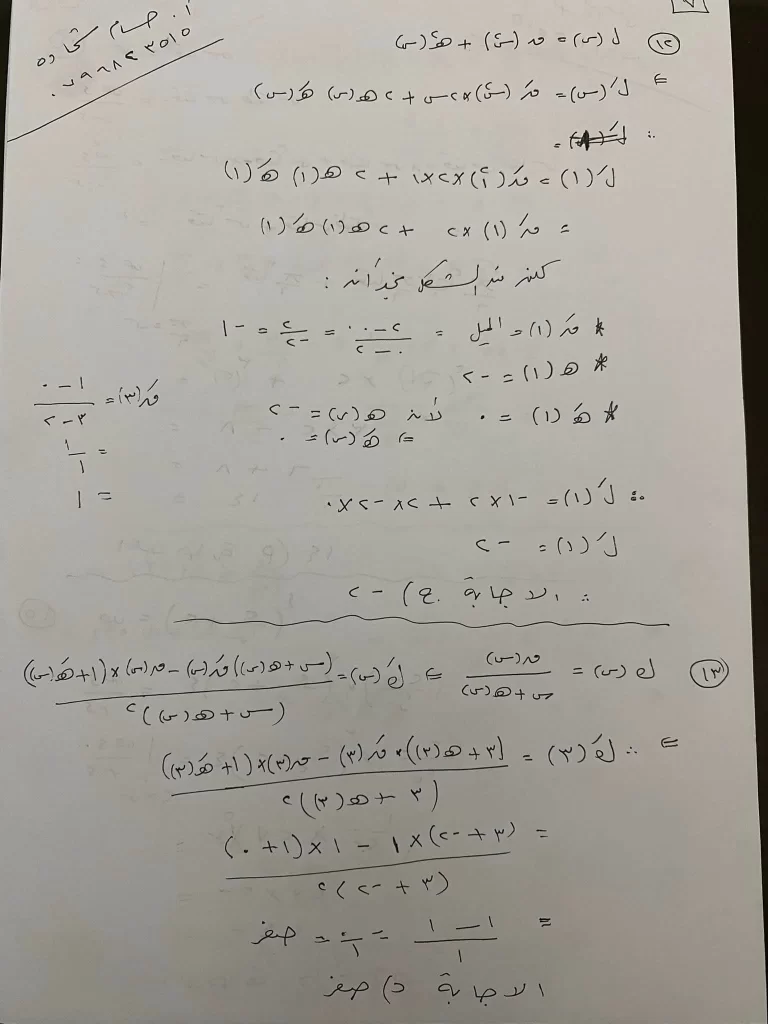 ٧
أ. حسام شحاده
٠٧٩٩٨٤٣٥١٥
(١٢) ل(س) = ق(س٢) + هـ٢(س)
⇐ لَ(س) = قَ(س٢) × ٢س + ٢ هـ(س) هـَ(س)
∴
لَ(١) = قَ(١٢) × ٢ × ١ + ٢ هـ(١) هـَ(١)
= قَ(١) × ٢ + ٢ هـ(١) هـَ(١)
لكن من الشكل نجد أنه :
* قَ(١) = الميل = (٢ - ٠)/(٠ - ٢) = ٢/-٢ = -١
* هـ(١) = -٢
* هـَ(١) = ٠ لأن هـ(س) = -٢
⇐ هـَ(س) = ٠
قَ(٣) = (١ - ٠)/(٣ - ٢)
= ١/١
= ١
∴ لَ(١) = -١ × ٢ + ٢ × -٢ × ٠
لَ(١) = -٢
∴ الاجابة ج) -٢
(١٣) ك(س) = ق(س)/(س + هـ(س)) ⇐ كَ(س) = ((س + هـ(س)) قَ(س) - ق(س) × (١ + هـَ(س)))/(س + هـ(س))٢
⇐ ∴ كَ(٣) = ((٣ + هـ(٣)) × قَ(٣) - ق(٣) × (١ + هـَ(٣)))/(٣ + هـ(٣))٢
= ((٣ + -٢) × ١ - ١ × (١ + ٠))/(٣ + -٢)٢
= (١ - ١)/١ = ٠/١ = صفر
الاجابة د) صفر